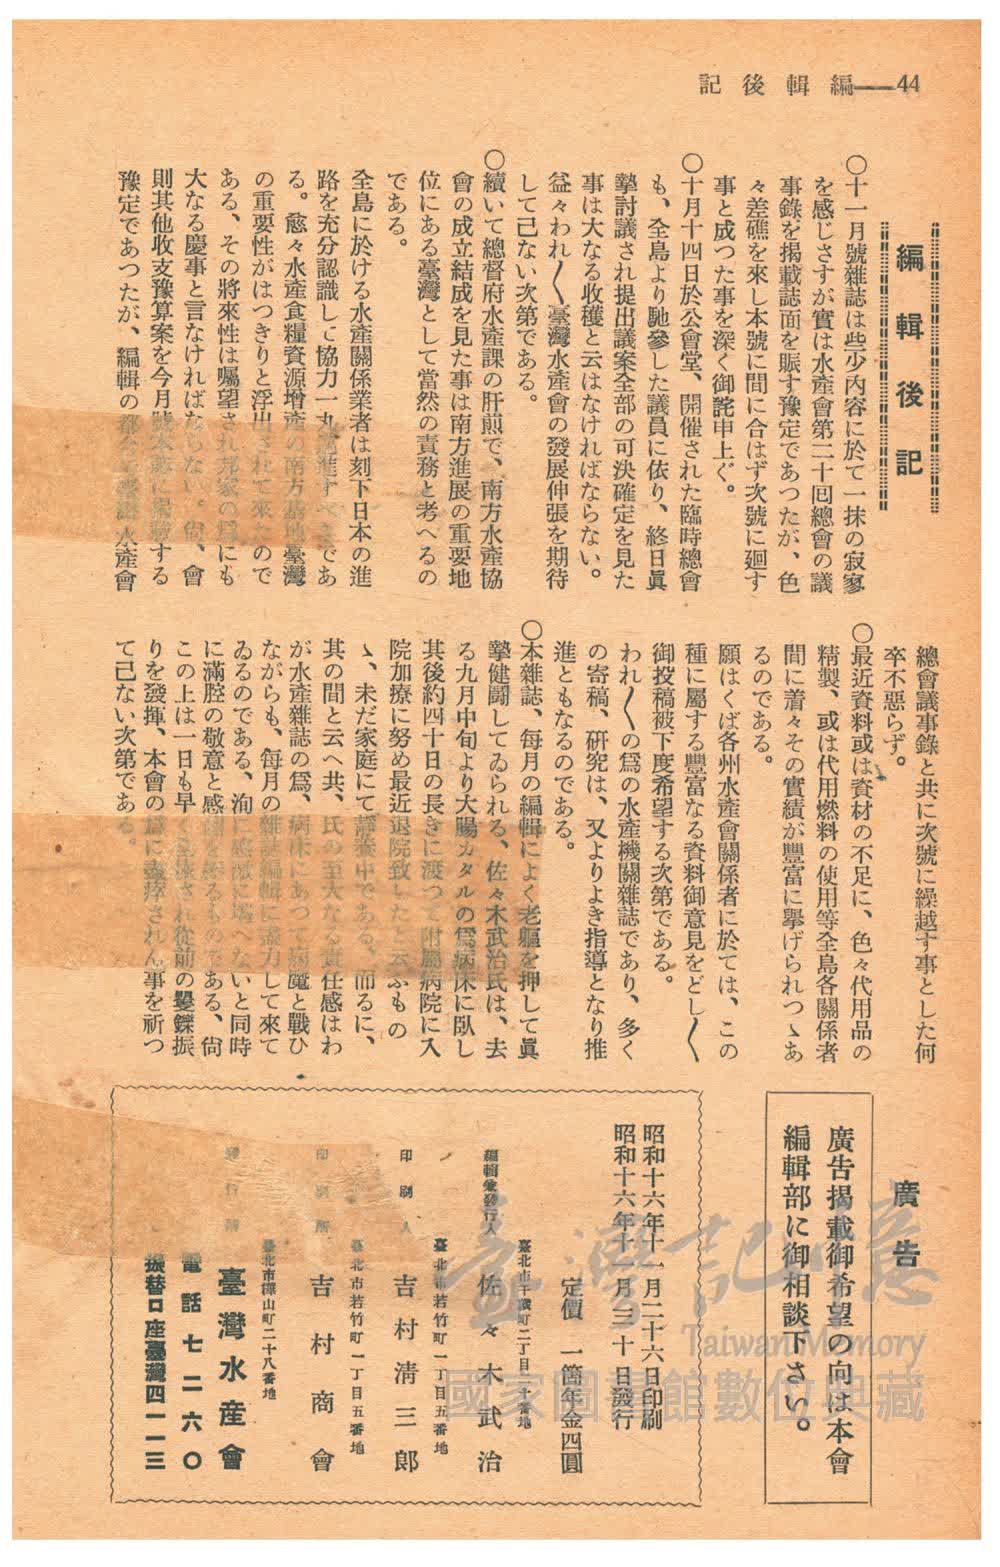 44——編輯後記
編輯後記
〇十一月號雜誌は些少內容に於て一抹の寂寥
を感じさすが實は水產會第二十回總會の議
事錄を揭載誌面を賑す豫定であつたが、色
々差礁を來し本號に間に合はず次號に廻す
事と成つた事を深く御詫申上ぐ。
〇十月十四日於公會堂、開催された臨時總會
も、全島より馳參した議員に依り、終日眞
摯討議され提出議案全部の可決確定を見た
事は大なる收穫と云はなければならない。
益々われ〱臺灣水產會の發展伸張を期待
して己ない次第である。
〇續いて總督府水產課の肝煎で、南方水產協
會の成立結成を見た事は南方進展の重要地
位にある臺灣として當然の責務と考へるの
である。
全島に於ける水產關係業者は刻下日本の進
路を充分認識して協力一丸 進すべきであ
る。愈々水產食糧資源增產の南方基地臺灣
の重要性がはつきりと浮出されて來たので
ある、その將來性は囑望され邦家の爲にも
大なる慶事と言なければならない。尙、會
則其他收支豫算案を今月號本誌に揭載する
豫定であつたが、編輯の都合で臺灣水產會
總會議事錄と共に次號に繰越す事とした何
卒不惡らず。
〇最近資料或は資材の不足に、色々代用品の
精製、或は代用燃料の使用等全島各關係者
間に着々その實績が豐富に擧げられつゝあ
るのである。
願はくば各州水產會關係者に於ては、この
種に屬する豐富なる資料御意見をどし〱
御投稿被下度希望する次第である。
われ〱の爲の水產機關雜誌であり、多く
の寄稿、硏究は、又よりよき指導となり推
進ともなるのである。
〇本雜誌、每月の編輯によく老軀を押して眞
摯健鬪してゐられる、佐々木武治氏は、去
る九月中旬より大腸カタルの爲病床に臥し
其後約四十日の長きに渡つて附屬病院に入
院加療に努め最近退院致したと云ふもの
ゝ、未だ家庭にて靜養中である。而るに、
其の間と云へ共、氏の至大なる責任感はわ
が水產雜誌の爲、病床にあつて病魔と戰ひ
ながらも、每月の雜誌編輯に盡力して來て
ゐるのである、洵に感激に堪へないと同時
に滿腔の敬意と感謝を るものである、尙
この上は一日も早く され從前の矍鑠振
りを發揮、本會の爲に盡瘁されん事を祈つ
て己ない次第である。
廣告
廣告揭載御希望の向は本會
編輯部に御相談下さい。
昭和十六年十一月二十六日印刷
昭和十六年十一月三十日發行
定價 一箇年金四圓
臺北市千歲町二丁目二十番地
編輯兼發行人 佐々木武治
臺北市若竹町一丁目五番地
印刷人 吉村淸三郎
臺北市若竹町一丁目五番地
印刷所 吉村商會
臺北市樺山町二十八番地
發行所 臺灣水產會
電話七二六〇
振替口座臺灣四一一三
臺灣記憶
Taiwan Memory
國家圖書館數位典藏